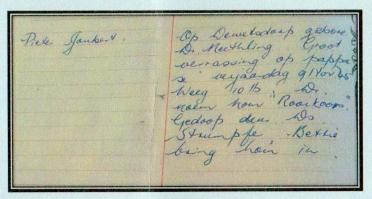 Piete Joubert.
Op Dewetsdorp gebore
Dr. Meuthling Groot
verrassing op pappa
se verjaardag 9 Nov
Weeg 10 lb. Dr.
noem hom "Rooikoons"
Gedoop deur Ds.
Strumpfe. Bettie
bring hom in